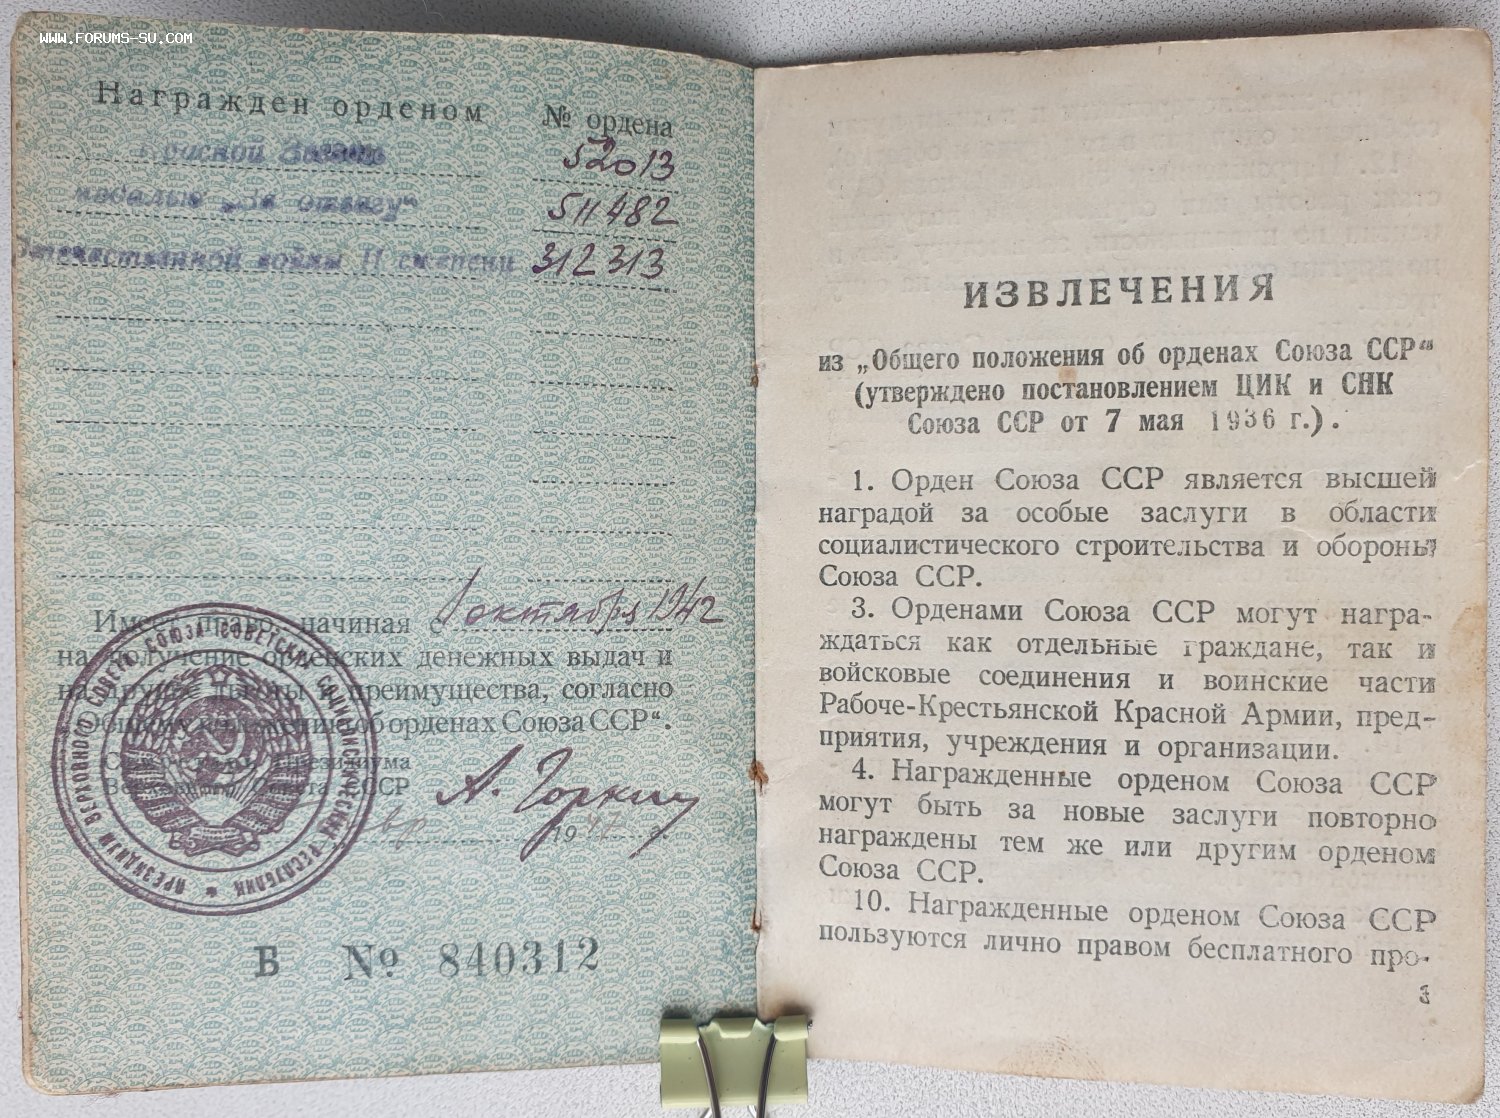 WWW.FORUMS-SU.COM
Награжден орденом № ордена
Красной Звезды 52013
медалью „За отвагу“ 511482
Отечественной войны II степени 312313
Имеет право, начиная с 1 октября 1942
на получение орденских денежных выдач и
на другие льготы и преимущества, согласно
„Общему положению об орденах Союза ССР“.
Секретарь Президиума
Верховного Совета СССР
А. Горкин
1947 г.
ПРЕЗИДИУМ ВЕРХОВНОГО СОВЕТА СОЮЗА СОВЕТСКИХ СОЦИАЛИСТИЧЕСКИХ РЕСПУБЛИК
Б № 840312
ИЗВЛЕЧЕНИЯ
из „Общего положения об орденах Союза ССР“
(утверждено постановлением ЦИК и СНК
Союза ССР от 7 мая 1936 г.).
1. Орден Союза ССР является высшей
наградой за особые заслуги в области
социалистического строительства и обороны
Союза ССР.
3. Орденами Союза ССР могут награ-
ждаться как отдельные граждане, так и
войсковые соединения и воинские части
Рабоче-Крестьянской Красной Армии, пред-
приятия, учреждения и организации.
4. Награжденные орденом Союза ССР
могут быть за новые заслуги повторно
награждены тем же или другим орденом
Союза ССР.
10. Награжденные орденом Союза ССР
пользуются лично правом бесплатного про-
3